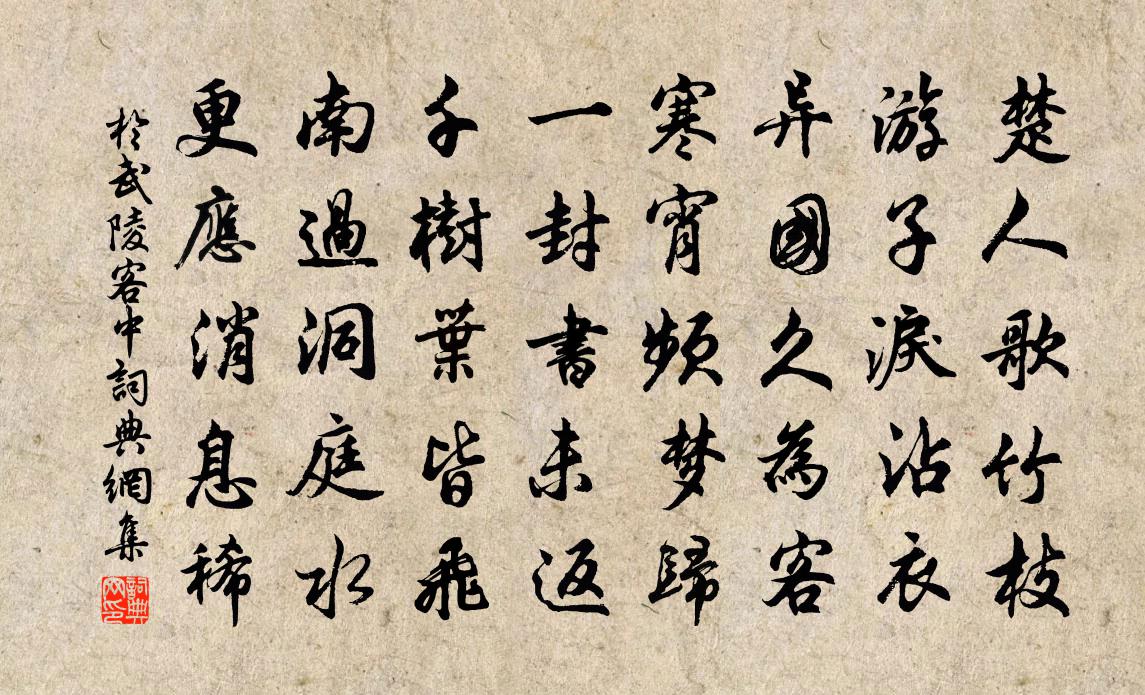 楚人歌竹枝
游子淚沾衣
异國久為客
寒宵頻梦歸
一封書未返
千樹葉皆飛
南過洞庭水
更應消息稀
於武陵客中詞典網集
詞典網印